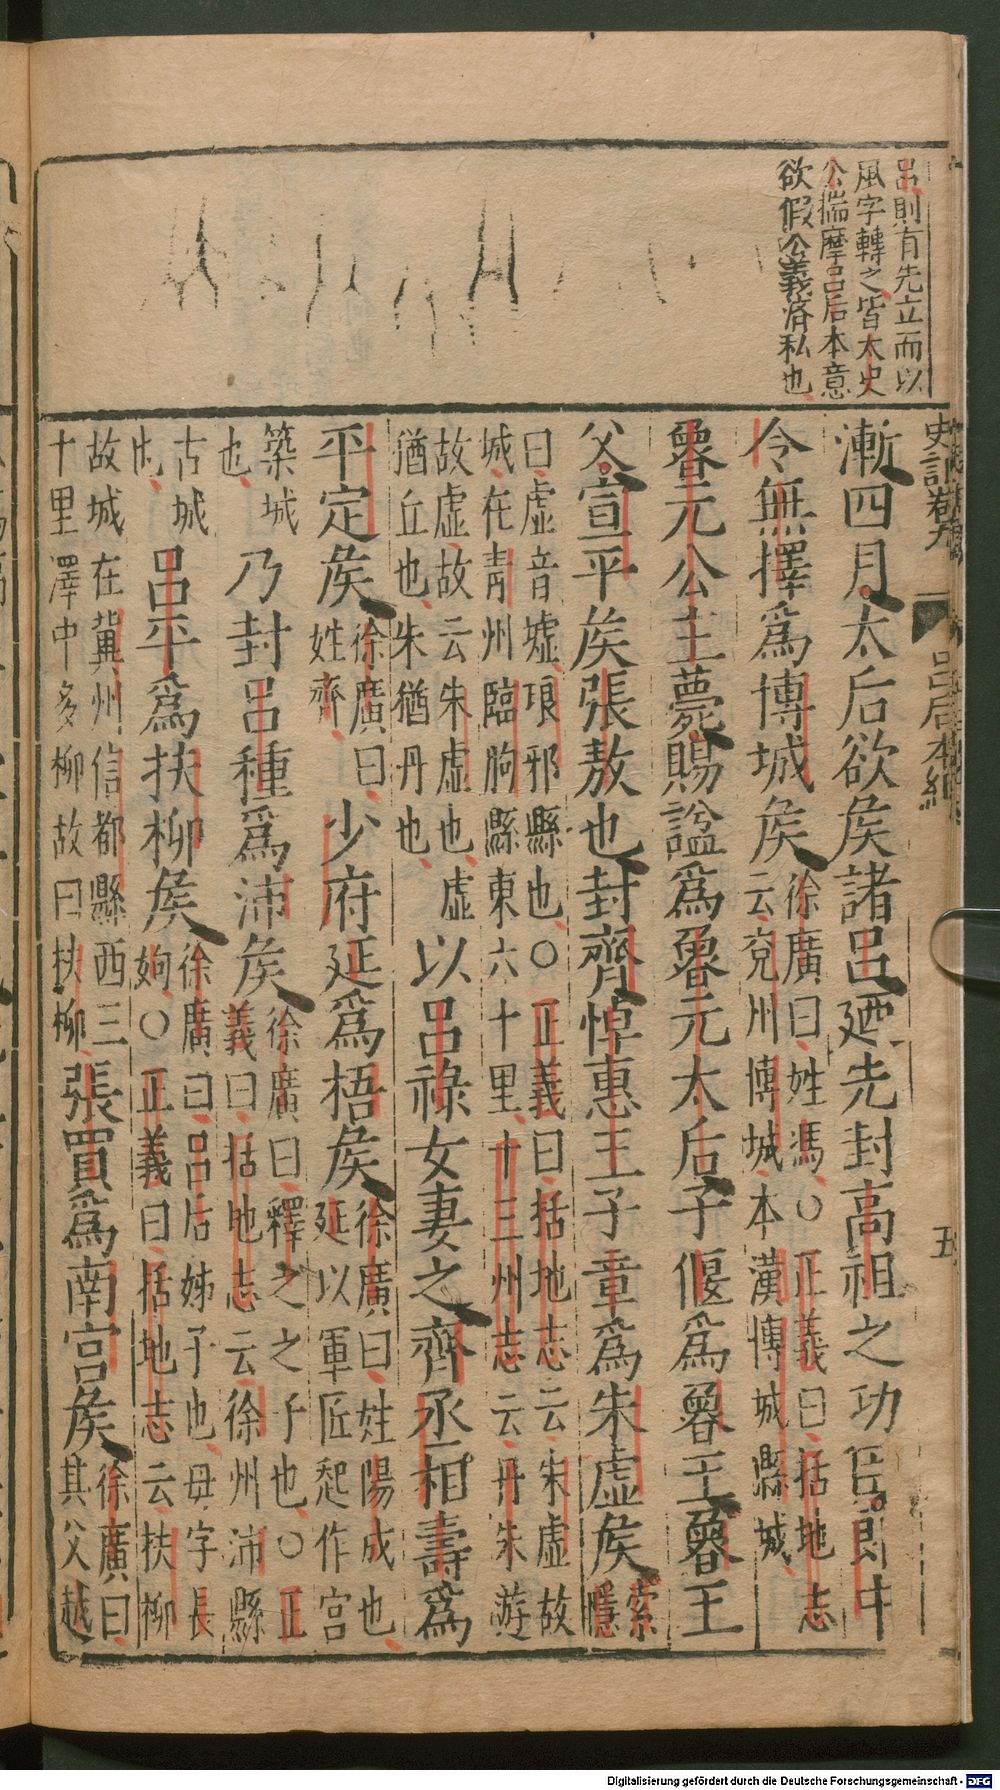 呂則有先立而以
風字轉之皆太史
公揣摩呂后本意
欲假公義済私也
史記卷九
呂后本紀
五
漸四月太后欲矦諸呂廼先封高祖之功臣郎中
令無擇爲博城矦
徐廣曰姓馮○正義曰括地志
云兖州博城本漢博城縣城
魯元公主薨賜諡爲魯元太后子偃爲魯王魯王
父宣平矦張敖也封齊悼惠王子章爲朱虛矦
索
隱
曰虛音墟琅邪縣也○正義曰括地志云朱虛故
城在靑州臨朐縣東六十里十三州志云丹朱遊
故虛故云朱虛也虛
猶丘也朱猶丹也
以呂祿女妻之齊丞相壽爲
平定矦
徐廣曰
姓齊
少府延爲梧矦
徐廣曰姓陽成也
延以軍匠起作宮
築城
也
乃封呂種爲沛矦
徐廣曰釋之之子也○正
義曰括地志云徐州沛縣
古城
也
呂平爲扶柳矦
徐廣曰呂后姊子也母字長
姁○正義曰括地志云扶柳
故城在冀州信都縣西三
十里澤中多柳故曰扶柳
張買爲南宮矦
徐廣曰
其父越
Digitalisierung gefördert durch die Deutsche Forschungsgemeinschaft - DFG